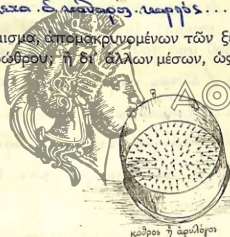 μισμα, απομακρυνομένων τῶν ξέ
ώθρου; ἢ δι᾽ ἄλλων μέσων, ὡς
ΑΘ
κόθρος ἢ ἀρυλόγος